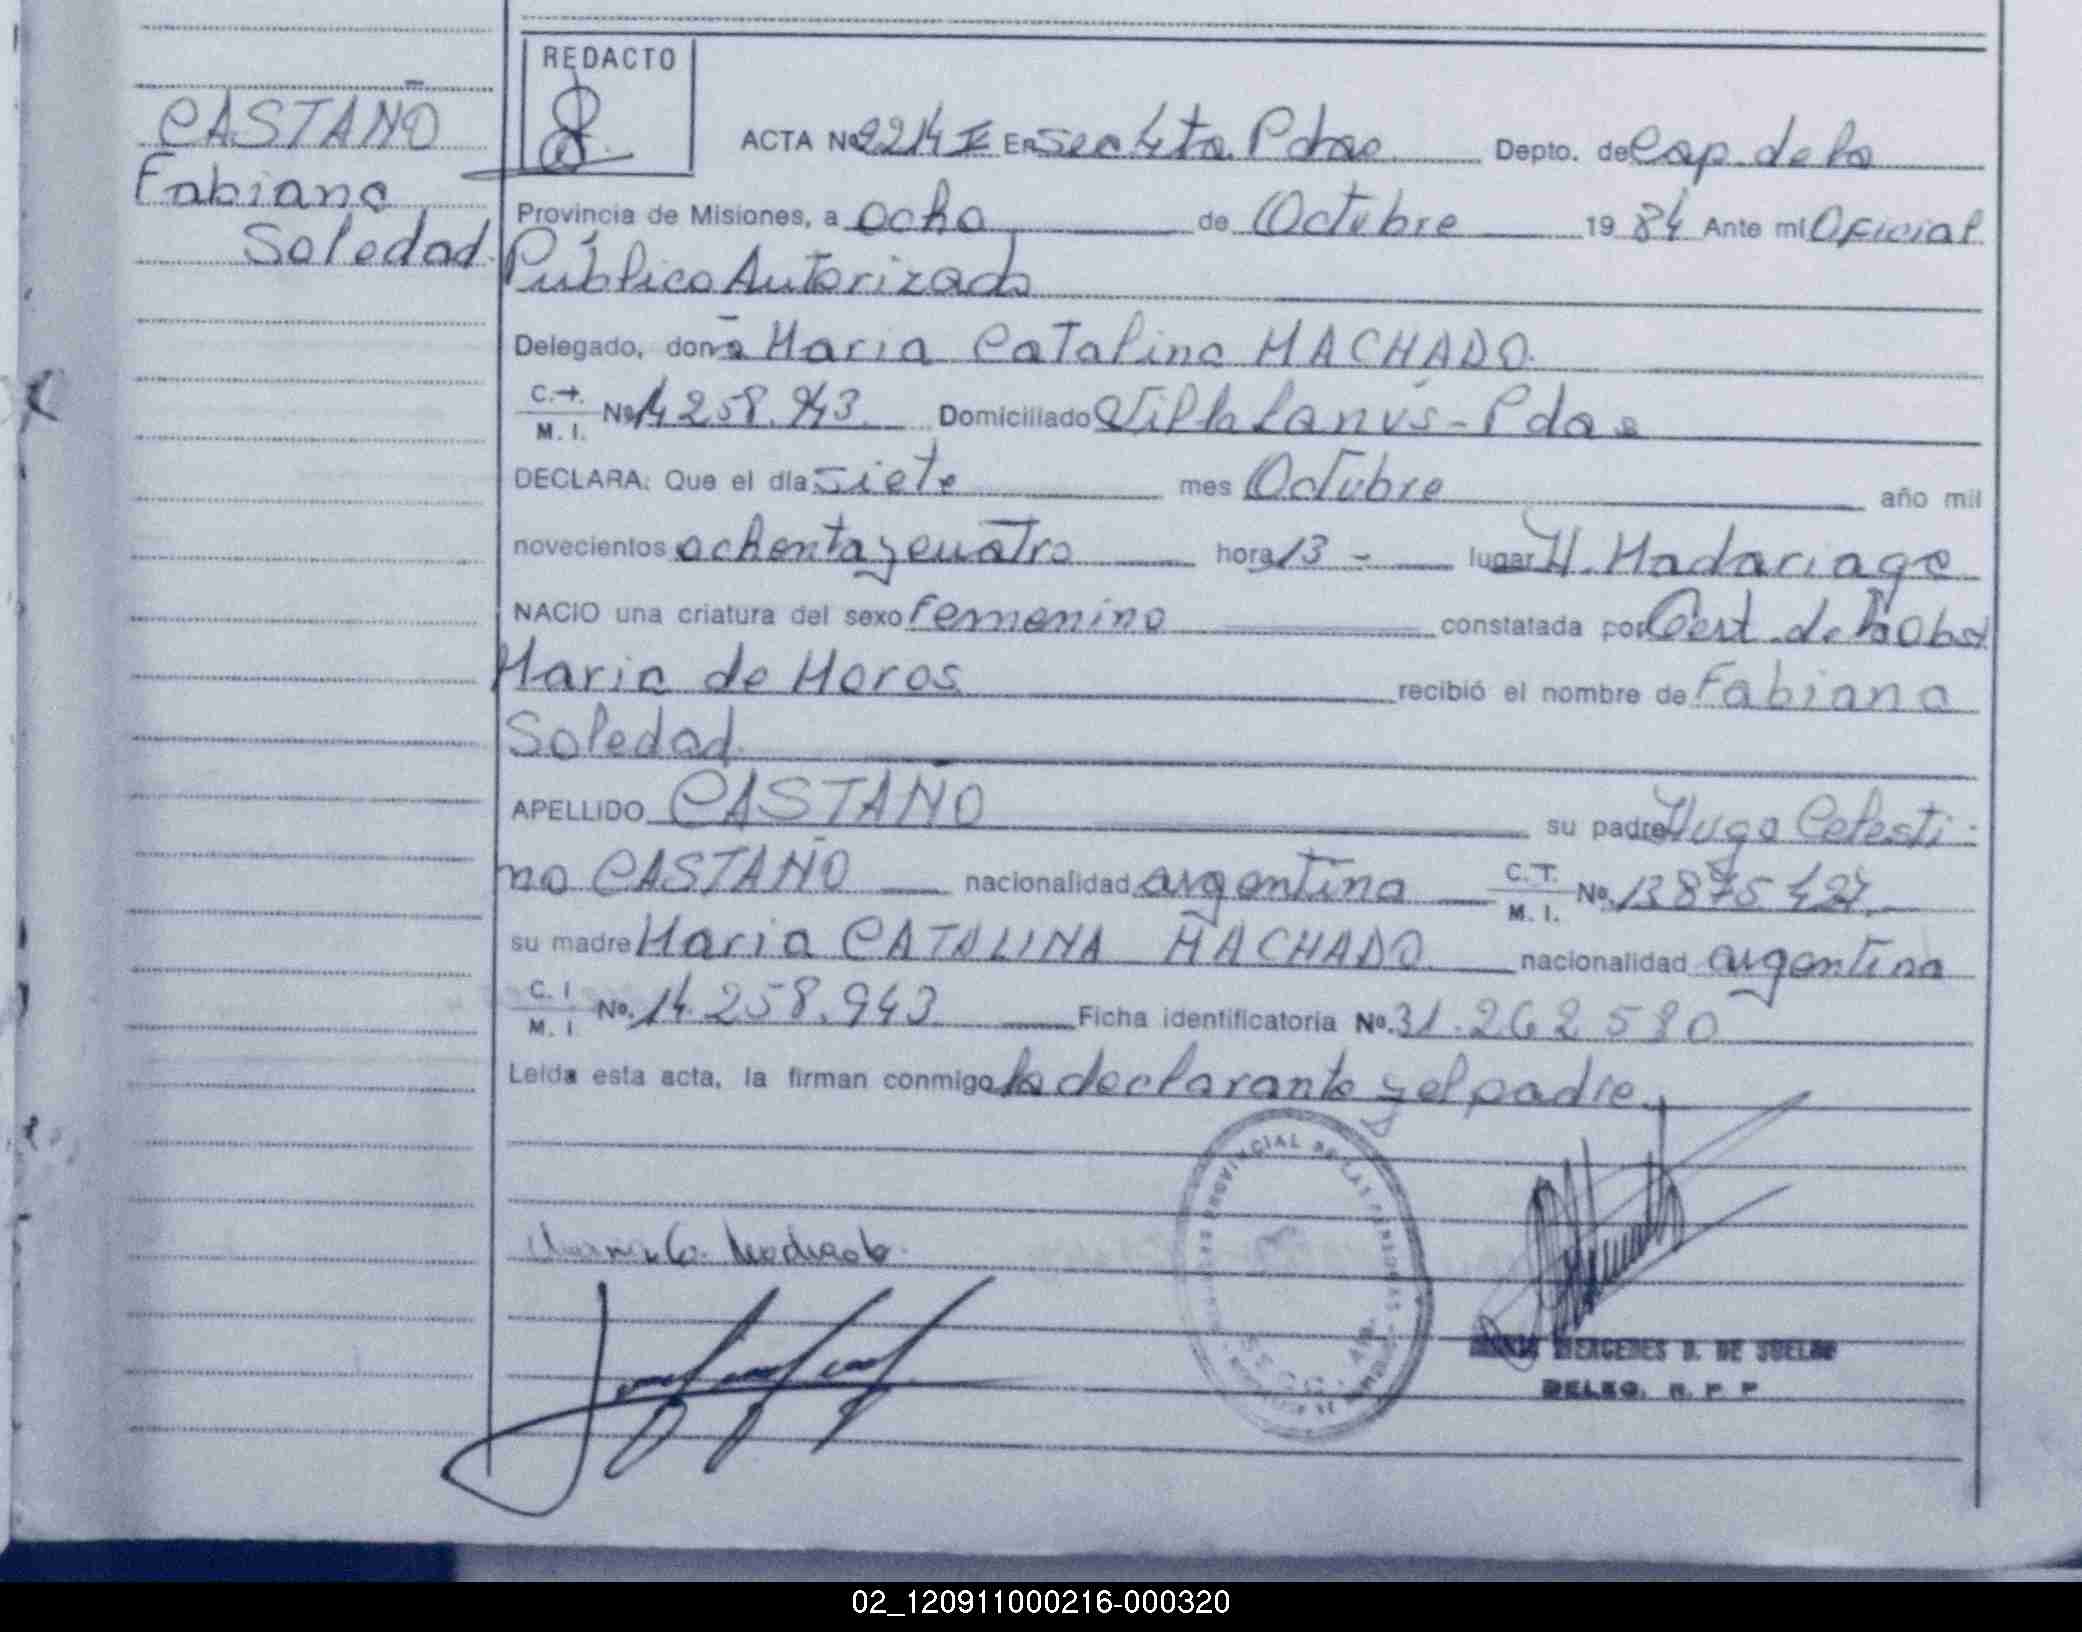 REDACTO
CASTAÑO
Fabiana
Soledad.
ACTA Nº 2214 II En Sec 4ta. Pdas. Depto. de Cap. de la
Provincia de Misiones, a ocho de Octubre 1984 Ante mi Oficial
Público Autorizado
Delegado, doña Maria Catalina MACHADO.
C.I. M. I. Nº 14258.943. Domiciliado Villa Lanús - Pdas
DECLARA: Que el día siete mes Octubre año mil
novecientos ochenta y cuatro hora 13 - lugar H. Madariaga
NACIO una criatura del sexo Femenino constatada por Cert. de la Obst
Maria de Moros recibió el nombre de Fabiana
Soledad.
APELLIDO CASTAÑO su padre Hugo Celesti-
no CASTAÑO nacionalidad argentina C.I. M. I. Nº. 13875 427
su madre Maria CATALINA MACHADO nacionalidad argentina
C. I M. I. Nº. 14.258.943 Ficha identificatoria Nº. 31.262580
Leída esta acta, la firman conmigo la declarante y el padre.
PROVINCIAL DE LAS PERSONAS
Maria C. Machado.
MERCEDES D. DE
DELEG. R. P. P
02_120911000216-000320